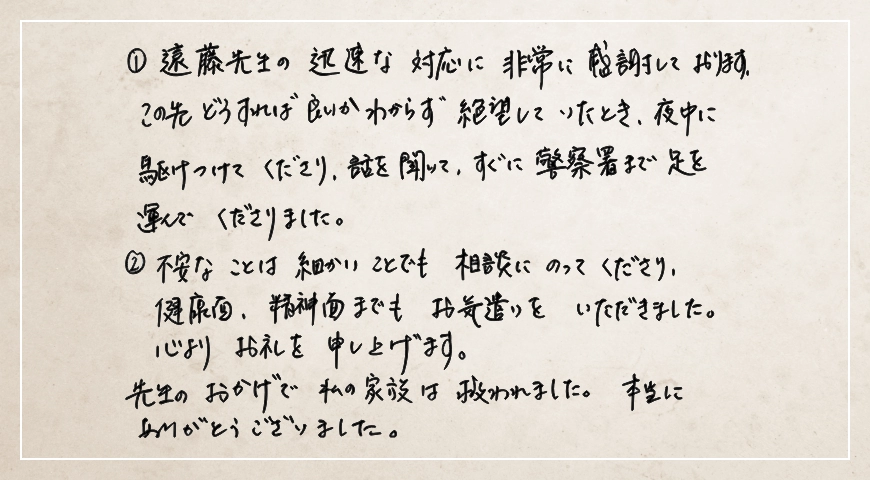 ① 遠藤先生の 迅速な 対応に 非常に 感謝して おります。
この先 どうすれば 良いか わからず 絶望して いたとき、夜中に
駆けつけて くださり、話を 聞いて、すぐに 警察署まで 足を
運んで くださりました。
② 不安な ことは 細かい ことでも 相談に のって くださり、
健康面、精神面までも お気遣いを いただきました。
心より お礼を 申し上げます。
先生の おかげで 私の家族は 救われました。 本当に
ありがとう ございました。